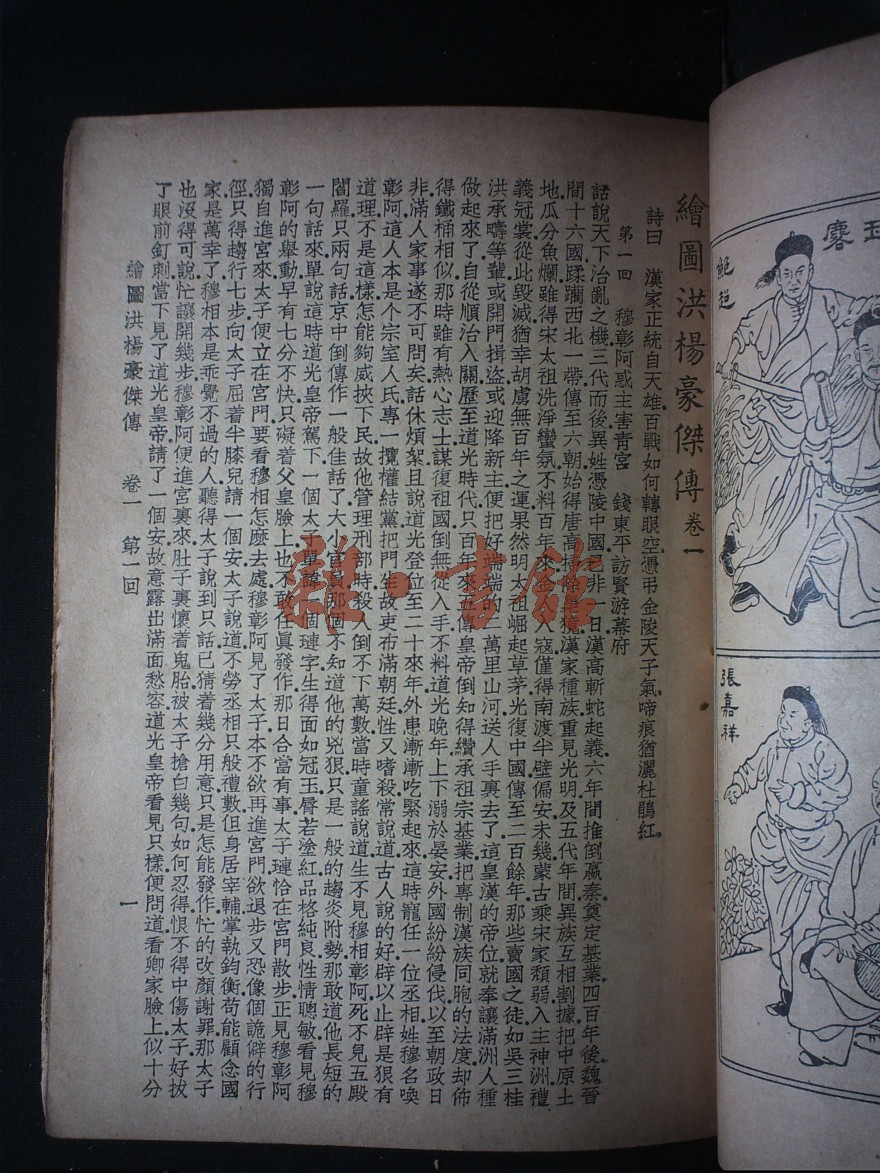 繪圖洪楊豪傑傳 卷一
詩曰 漢家正統自天雄百戰如何轉眼空憑弔金陵天子氣啼痕猶灑杜鵑紅
第一回 穆彰阿惑主害青宮 錢東平訪賢游幕府
話說天下治亂之機三代而後異姓憑陵中國已非一日漢高斬蛇起義六年間推倒嬴秦奠定基業四百年後魏晉
間十六國蹂躪西北一帶傳至六朝始得唐高掃除漢家種族重見光明及五代年間異族互相割據把中原土
地瓜分魚爛雖得宋太祖洗淨蠻氛不料百年來金人入寇僅得南渡半壁偏安未幾蒙古乘宋家頹弱入主神洲禮
義冠裳從此毀滅猶幸胡虜無百年之運果然明太祖崛起草茅光復中國傳至二百餘年那些賣國之徒如吳三桂
洪承疇等輩或開門揖盜或迎降新主便把好端端的二萬里山河送人手裏去了這皇漢的帝位就奉讓滿洲人種
做起來了自從順治入關歷至道光時代只百年來五傳皇帝倒知得纘承祖宗基業把專制漢族同胞的法度却佈
得鐵桶相似那時雖有熱心志士謀復祖國倒無從入手不料道光晚年上下溺於晏安外國紛紛侵伐以至朝政日
非滿人家事遂不可問矣話休煩絮且說道光登位至二十來年外患漸漸吃緊起來這時寵任一位丞相姓穆名喚
彰阿這人本是個宗室人氏專一攬權結黨把門生故吏布滿朝廷性又嗜殺常說道古人說的好辟以止辟是狠有
道理不是這樣怎能夠威挾下民故他管理刑部時殺人倒不下萬數當時童謠說道生不見穆相彰阿死不見五殿
閻羅只兩句話京中倒傳作一般佳話了大小官員那個不知道他的兇狠只是一般的趨炎附勢那敢道他長短的
一句話來單說這時道光皇帝駕下一個太子單諱一個璉字生得面如冠玉臂若塗紅品格純良性情聰敏看見穆
彰阿的舉動早有七分不快只礙着父皇臉上也不敢任眞發作那日合當有事太子璉恰在宮門散步正見穆彰阿
獨自進宮來太子便立在宮門要看穆相怎麽去處穆彰阿見了太子本不欲再進宮門欲退步又恐像個詭僻的行
徑只得趨行七步向太子屈着半膝兒請一個安太子說道不勞丞相只般禮數但身居宰輔掌執鈞衡苟能顧念國
家是萬幸了穆相本是乖覺不過的人聽得太子說到只話已猜着幾分用意只是怎能發作忙的改顏謝罪那太子
也沒得可說忙讓開幾步穆彰阿便進宮裏來肚子裏懷着鬼胎被太子搶白幾句如何忍得恨不得中傷太子好拔
了眼前釘刺當下見了道光皇帝請了一個安故意露出滿面愁容道光皇帝看見只樣便問道看卿家臉上似十分
繪圖洪楊豪傑傳 卷一 第一回
一
鮑超
張嘉祥
雜·書館